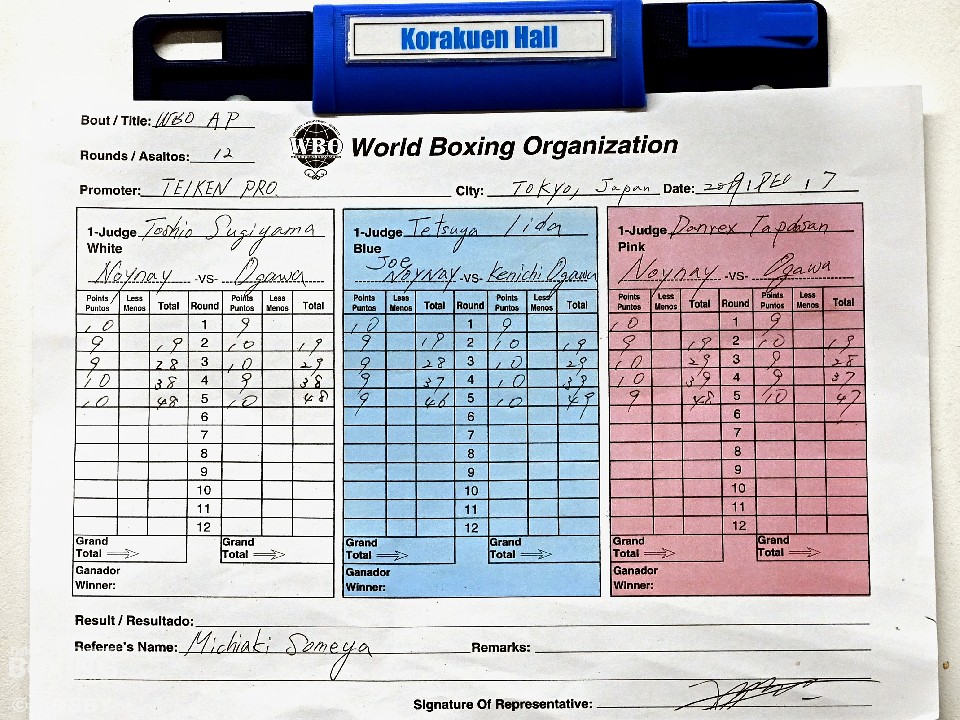 Korakuen Hall
Bout / Title: WBO AP
WBO World Boxing Organization
Rounds / Asaltos: 12
Promoter: TEIKEN PRO. City: TOKYO, Japan Date: DEC 17
1-Judge Toshio Sugiyama 1-Judge Tetsuya Iida 1-Judge Danrex Tapdasan
White Blue Pink
Noynay -VS- Ogawa Joe NOYNAY -VS- Kenichi Ogawa Noynay -VS- Ogawa
Points Puntos Less Menos Total Round Points Puntos Less Menos Total Points Puntos Less Menos Total Round Points Puntos Less Menos Total Points Puntos Less Menos Total Round Points Puntos Less Menos Total
10 1 9 10 1 9 10 1 9
9 19 2 10 19 9 19 2 10 19 9 19 2 10 19
9 28 3 10 29 9 28 3 10 29 10 29 3 9 28
10 38 4 9 38 9 37 4 10 39 10 39 4 9 37
10 48 5 10 48 9 46 5 10 49 9 48 5 10 47
6 6 6
7 7 7
8 8 8
9 9 9
10 10 10
11 11 11
12 12 12
Grand Total Grand Total Grand Total Grand Total Grand Total Grand Total
Ganador Ganador Ganador
Winner: Winner: Winner:
Result / Resultado:
Referee's Name: Michiaki Someya Remarks:
Signature Of Representative: